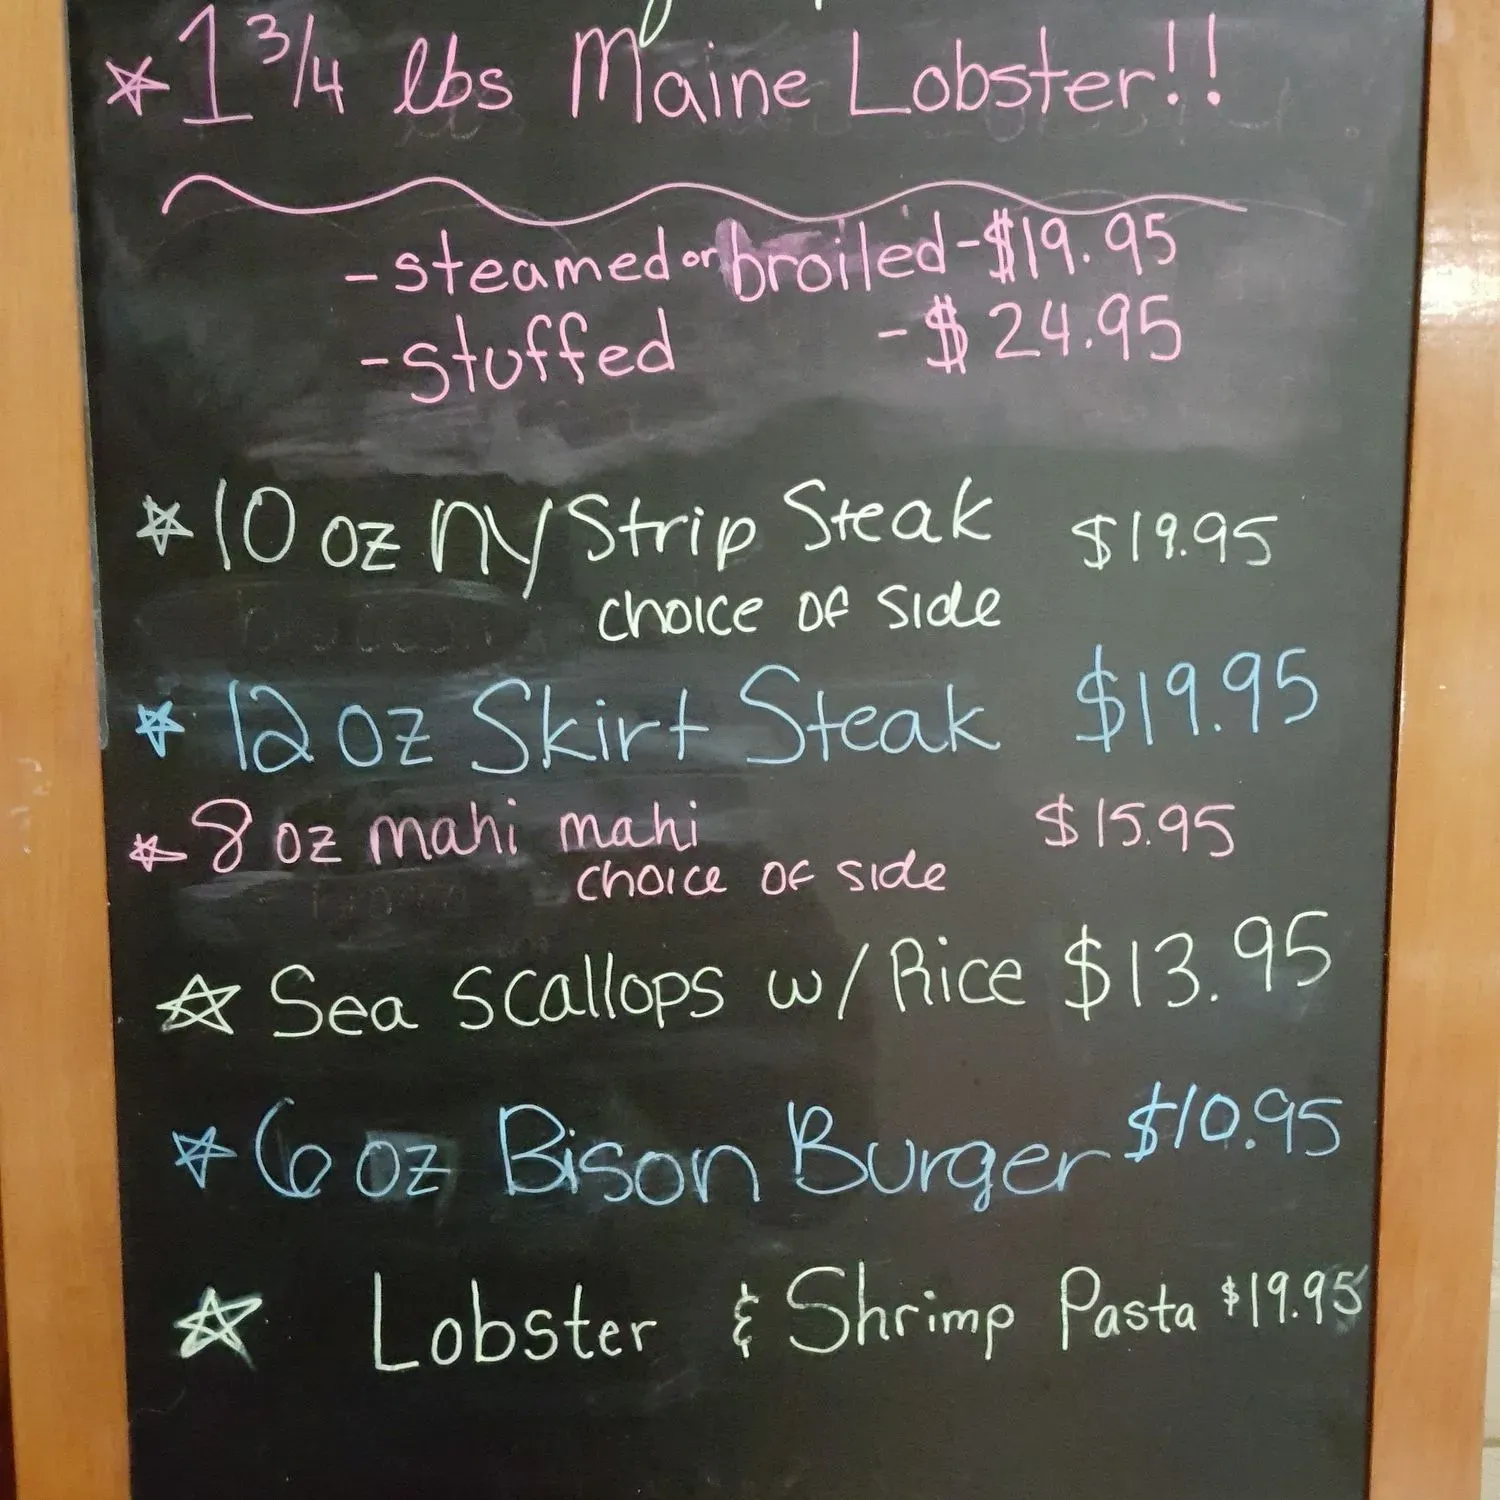 1 3/4 lbs Maine Lobster!!
-steamed or broiled-$19.95
-stuffed -$24.95
10 oz NY Strip Steak $19.95
choice of side
12 oz Skirt Steak $19.95
8 oz mahi mahi $15.95
choice of side
Sea Scallops w/ Rice $13.95
6 oz Bison Burger $10.95
Lobster & Shrimp Pasta $19.95